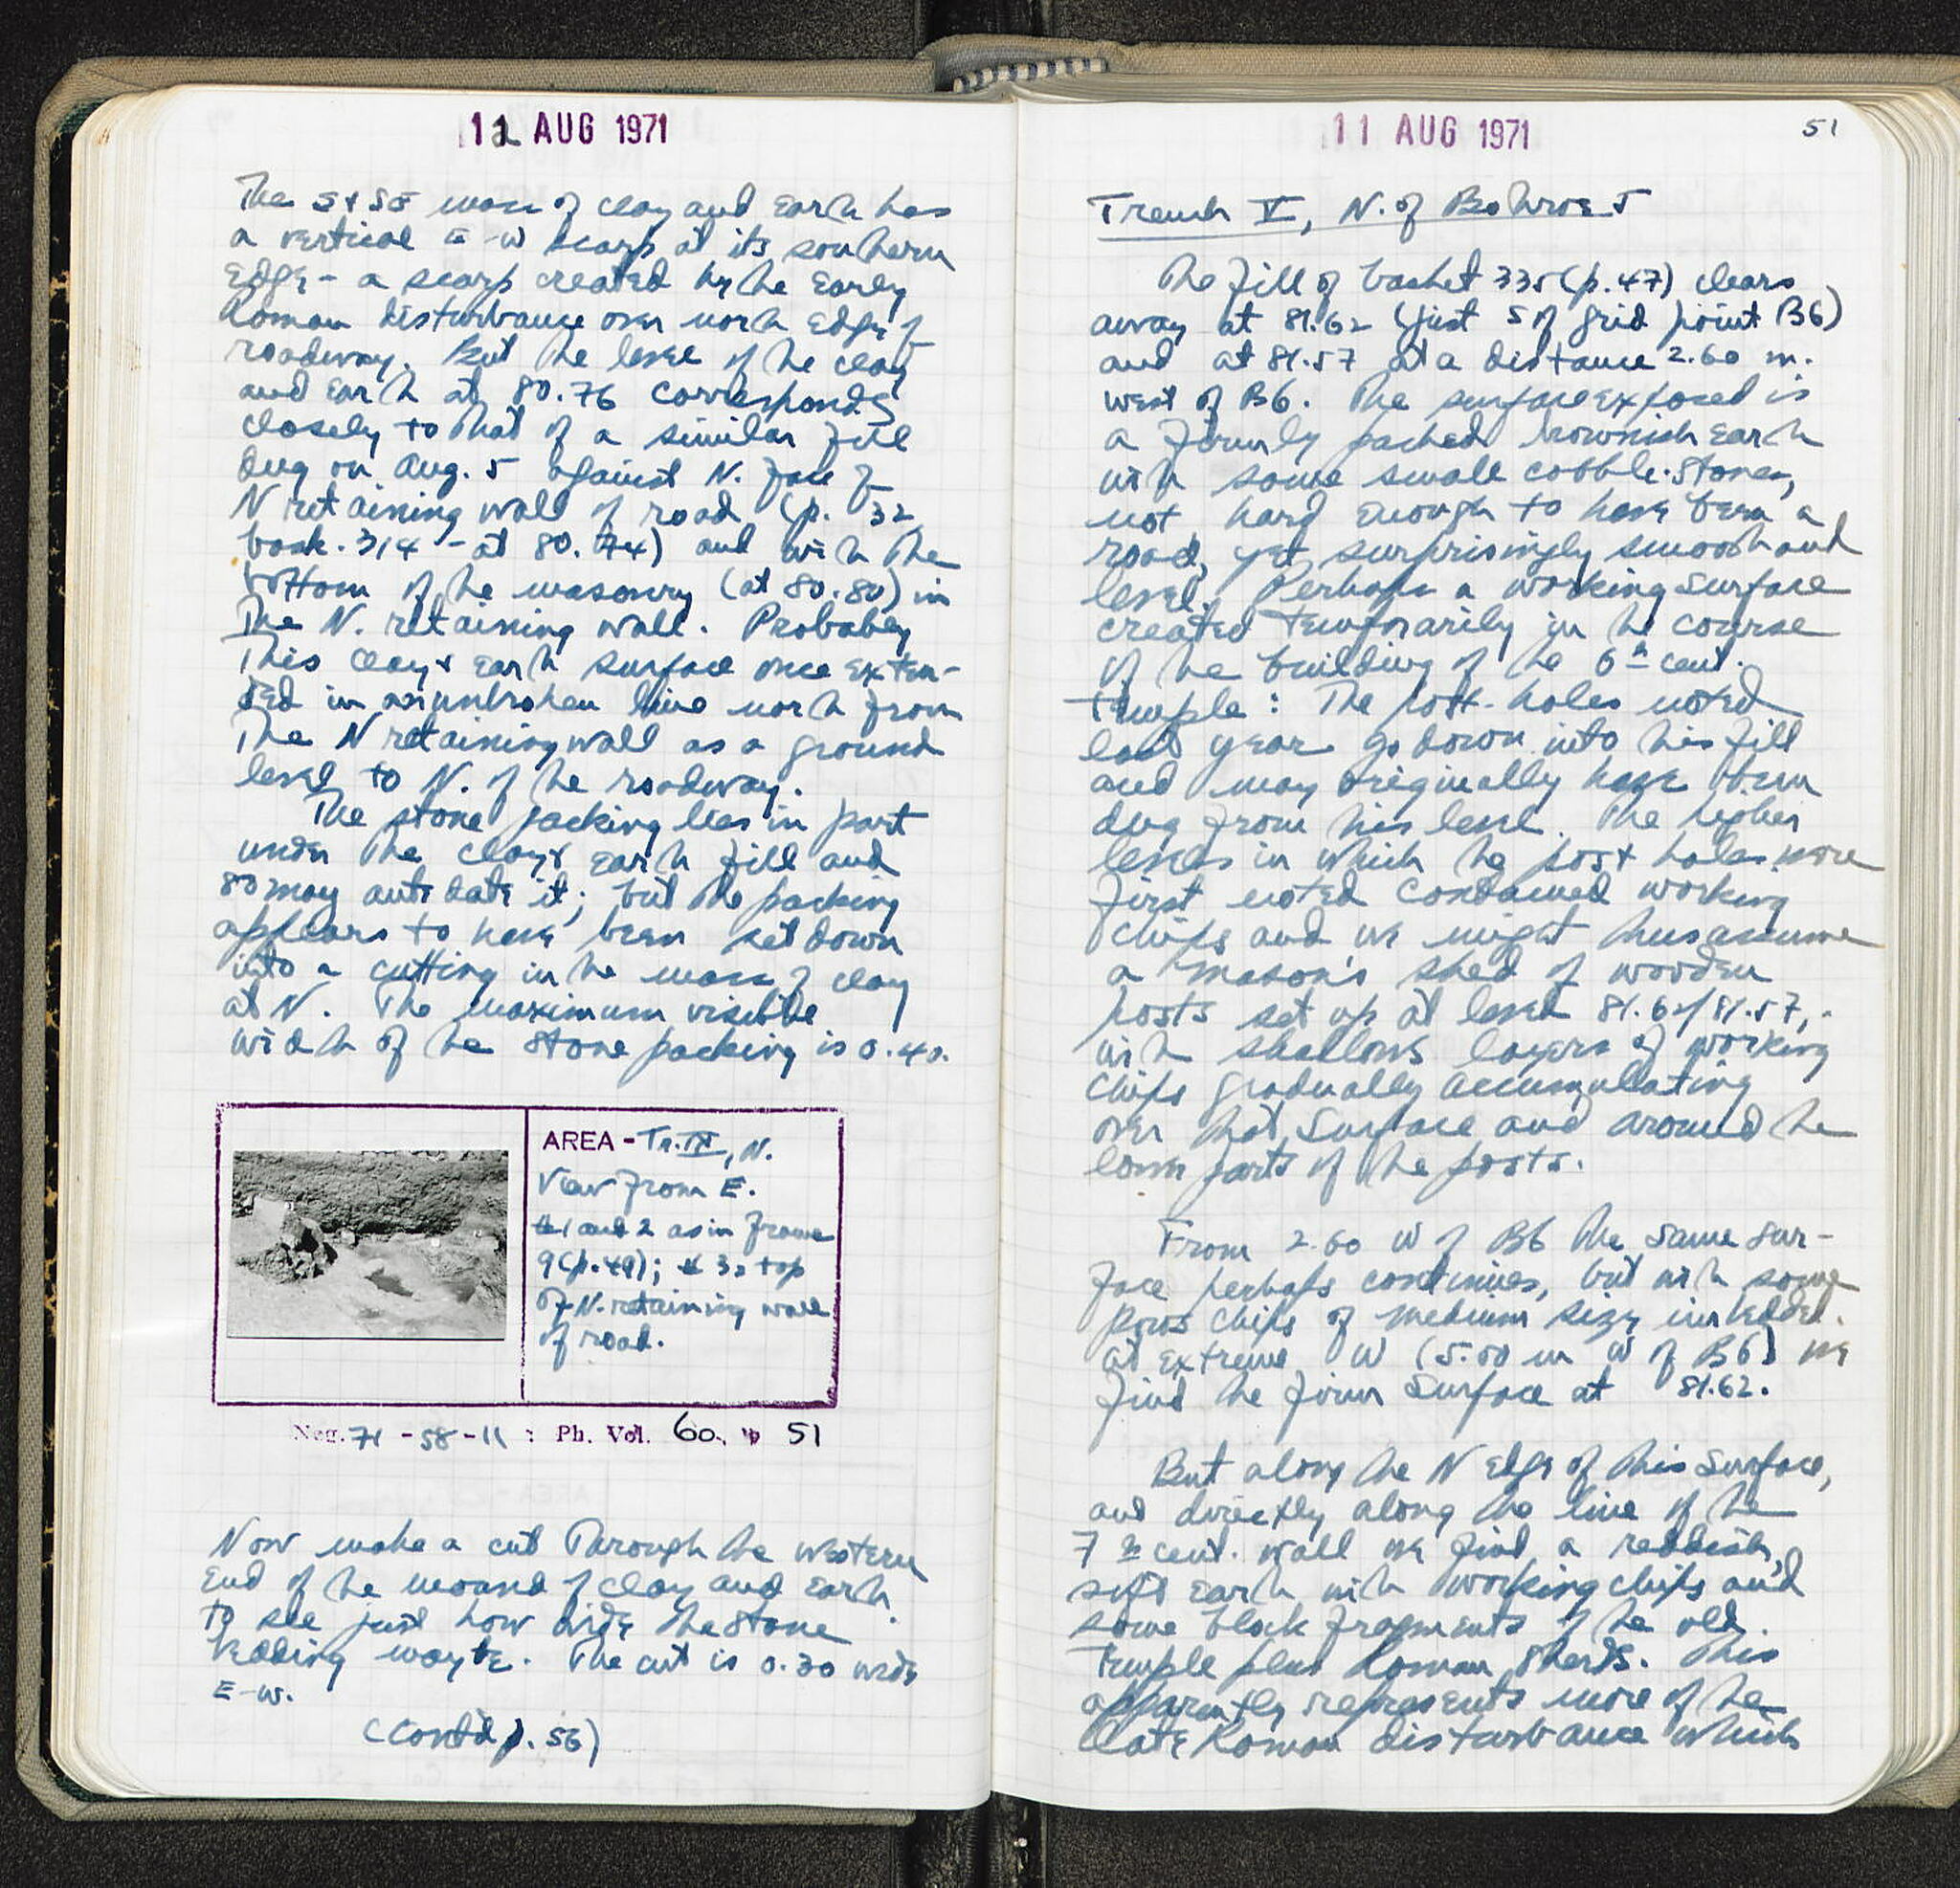 12 AUG 1971
The S + SE mass of clay and earth has
a vertical E-W scarp at its southern
edge - a scarp created by the Early
Roman disturbance over north edge of
roadway. But the level of the clay
and earth at 80.76 corresponds
closely to that of a similar fill
dug on Aug. 5 against N. face of
N retaining wall of road (p. 32
bask. 314 - at 80.74) and with the
bottom of the masonry (at 80.80) in
the N. retaining wall. Probably
this clay & earth surface once exten-
ded in an unbroken line north from
the N retaining wall as a ground
level to N. of the roadway.
The stone packing lies in part
under the clay & earth fill and
so may antedate it; but the packing
appears to have been set down
into a cutting in the mass of clay
at N. The maximum visible
width of the stone packing is 0.40.
AREA - Tr. IX, N.
View from E.
#1 and 2 as in frame
9 (p. 49); # 3: top
of N. retaining wall
of road.
Neg. 71 - 58 - 11 : Ph. Vol. 60, p 51
Now make a cut through the western
end of the mound of clay and earth
to see just how wide the stone
bedding may be. The cut is 0.30 wide
E-W.
(Cont'd p. 56)
11 AUG 1971
51
Trench V, N. of Bothros 5
The fill of basket 335 (p. 47) clears
away at 81.62 (just S of grid point B6)
and at 81.57 at a distance 2.60 m.
west of B6. The surface exposed is
a firmly packed brownish earth
with some small cobble-stones,
not hard enough to have been a
road, yet surprisingly smooth and
level. Perhaps a working surface
created temporarily in the course
of the building of the 6th cent.
temple: The post-holes noted
last year go down into this fill
and may originally have been
dug from this level. The higher
levels in which the post holes were
first noted contained working
chips and we might thus assume
a mason's shed of wooden
posts set up at level 81.62/81.57,
with shallow layers of working
chips gradually accumulating
over that surface and around the
lower parts of the posts.
From 2.60 W of B6 the same sur-
face perhaps continues, but with some
poros chips of medium size imbedded.
At extreme W (5.00 m W of B6) we
find the firm surface at 81.62.
But along the N edge of this surface,
and directly along the line of the
7th cent. wall we find a reddish,
soft earth with working chips and
some block fragments of the old
temple plus Roman sherds. This
apparently represents more of the
Late Roman disturbance which